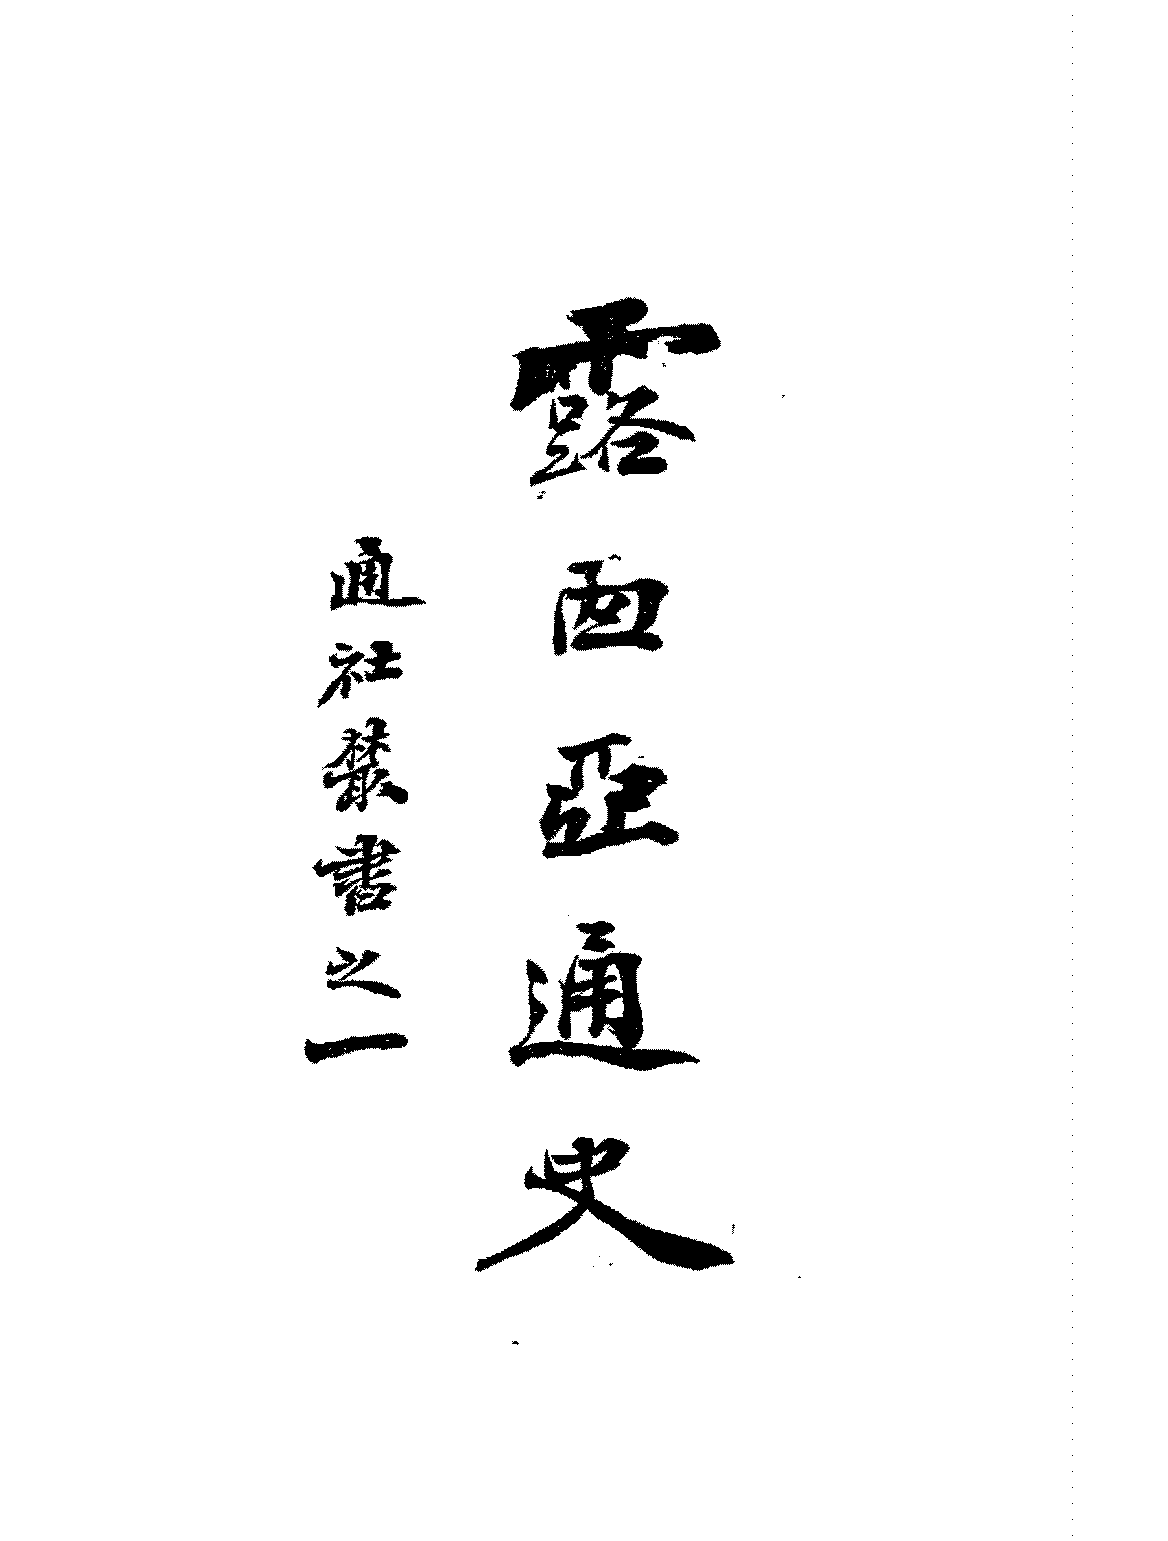 露西亞通史
通社叢書之一